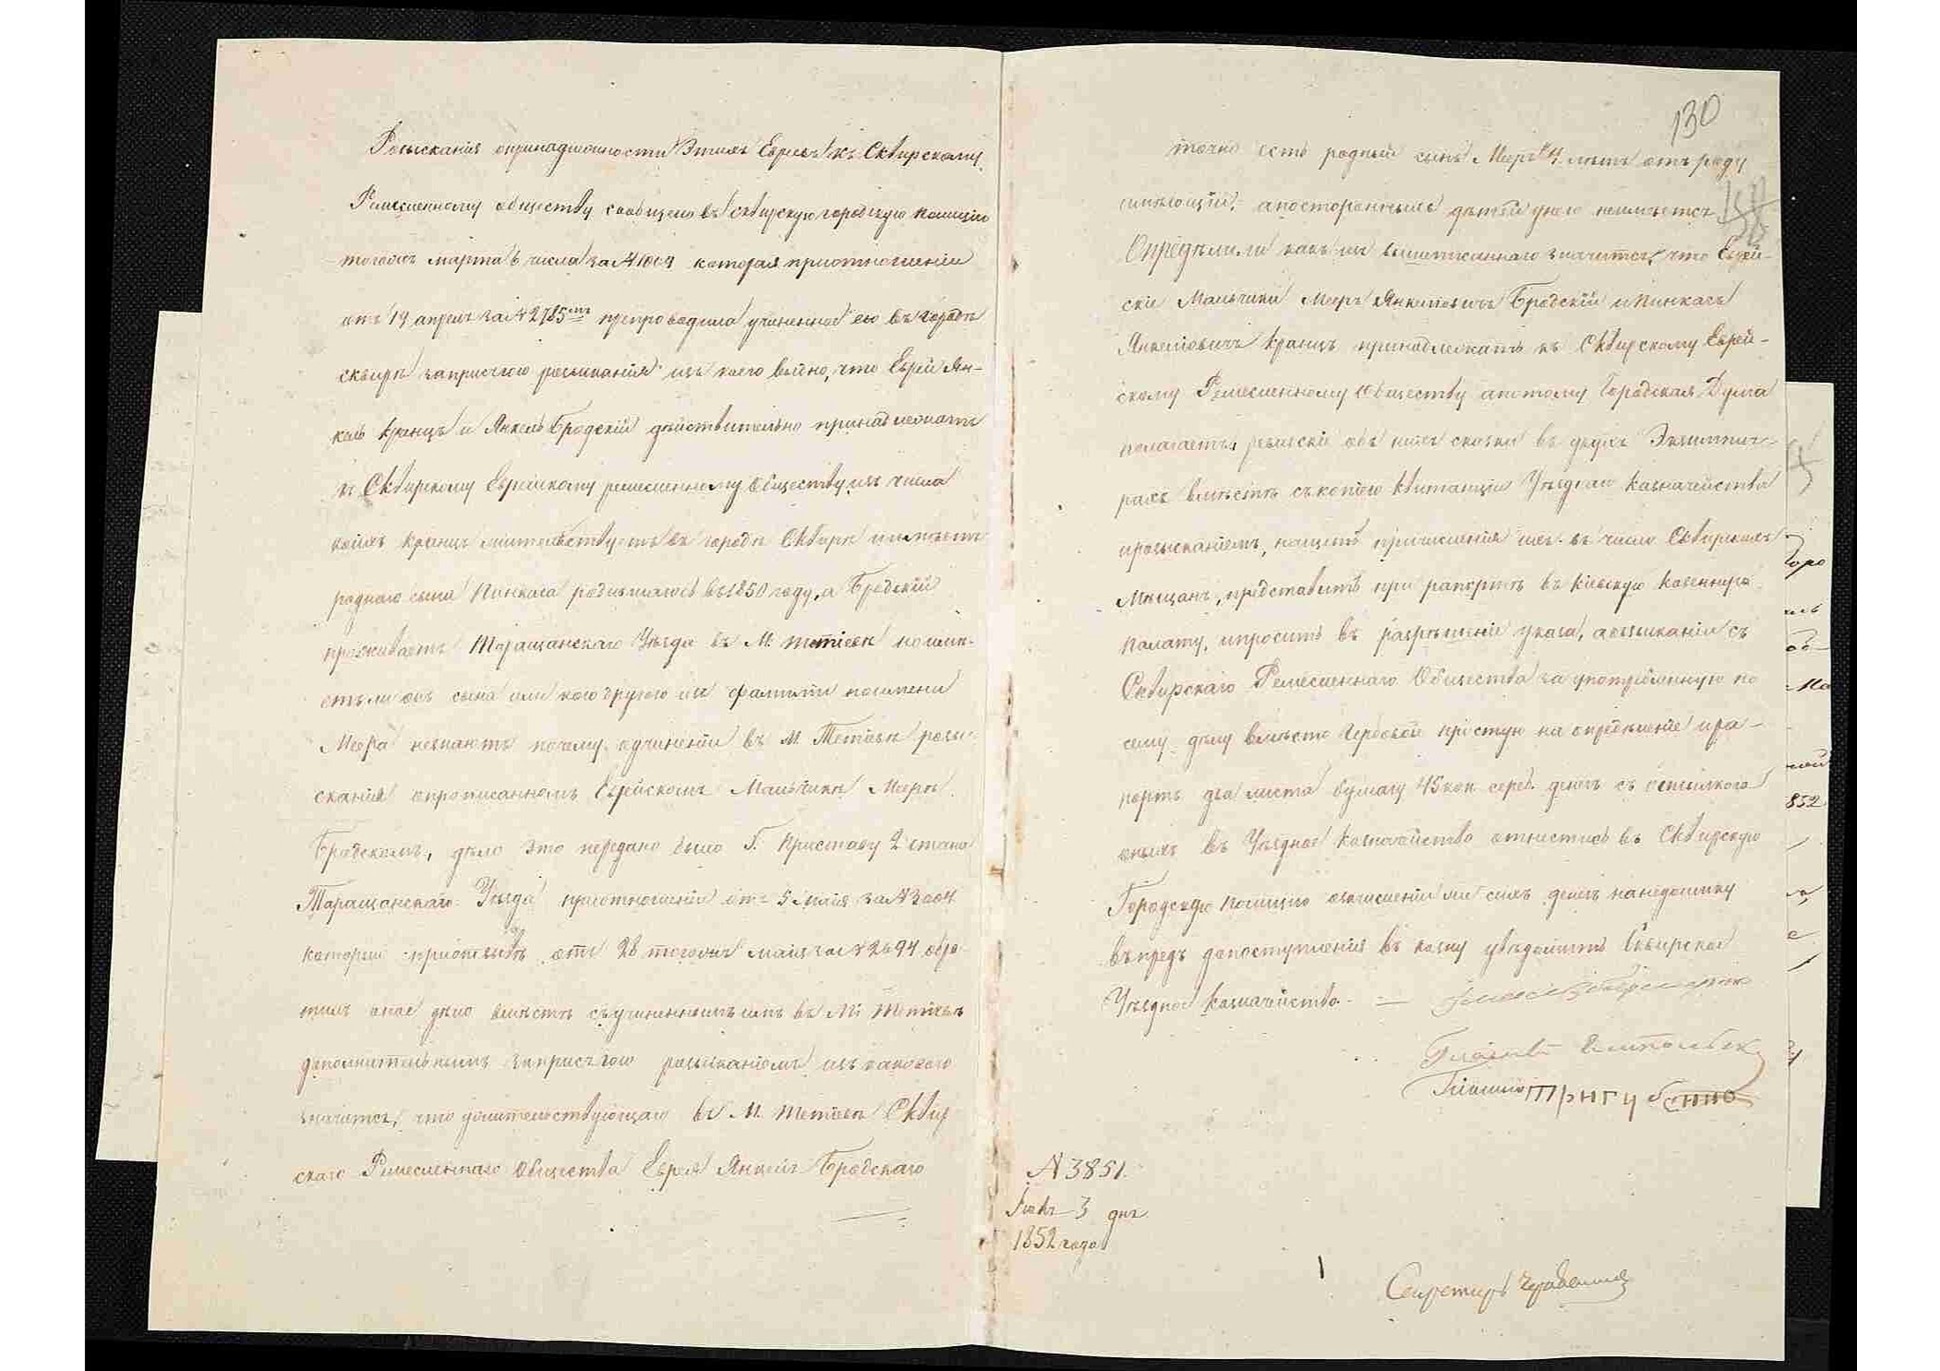 Розыскания о принадлежности этихъ Евреевъ къ Сквирскому
Ремесленному обществу сообщено въ Сквирскую городскую полицію
тогожъ марта 6 числа за № 1009 которая при отношеніи
отъ 19 апреля за № 2785мъ препроводила учиненное ею въ городѣ
Сквирѣ за присягою розысканія изъ коего видно, что Еврей Ян-
кель Кранцъ и Янкель Бродскій действительно принадлежатъ
къ Сквирскому Еврейскому ремесленному Обществу изъ числа
коихъ Кранцъ жительствуетъ въ городѣ Сквирѣ и имѣетъ
роднаго сына Пинкаса родившагося въ 1850 году, а Бродскій
проживаетъ Таращанскаго Уѣзда въ М. Тетіевѣ но имѣ-
етъ ли онъ сына или кого другого изъ фамиліи по имени
Меера незнаютъ почему о учиненіи въ М. Тетіевѣ розы-
сканія о прописанномъ Еврейскомъ Мальчикѣ Меерѣ
Бродскомъ, дѣло это передано было Г. Приставу 2 стана
Таращанскаго Уѣзда при отношеніи отъ 5 мая за № 3004
который при отзывѣ отъ 28 тогожъ мая за № 2694 обра-
тилъ оное дѣло вмѣстѣ съ учиненнымъ имъ въ М. Тетіевѣ
дополнительнымъ за присягою розысканіемъ изъ какового
значится, что у жительствующаго въ М. Тетіевѣ Сквир
скаго Ремесленнаго Общества Еврея Янкеля Бродскаго
130
точно есть родный сынъ Мееръ 4 лѣтъ отъ роду
имѣющій, а посторонныхъ дѣтей у него неимѣется
Опредѣлили какъ изъ вышеписаннаго значится, что Еврей-
скіе Мальчики Мееръ Янкелевичъ Бродскій и Пинкасъ
Янкелевичъ Кранцъ принадлежатъ къ Сквирскому Еврей-
скому Ремесленному Обществу а потому Городская Дума
полагаетъ, ревизскіе объ нихъ сказки въ двухъ Экземпля-
рахъ вмѣстѣ съ копіею квитанціи Уѣзднаго Казначейства
и розысканіемъ, на щетъ причисленія ихъ въ число Сквирскихъ
Мѣщанъ, представить при рапортѣ въ Кіевскую Казенную
Палату, и просить въ разрѣшеніе указа, а о взысканіи съ
Сквирскаго Ремесленнаго Общества за употребленную по
сему дѣлу вмѣсто Гербовой простую на опредѣленіе и ра-
портъ два листа бумагу 45 коп. сереб. денегъ съ отсылкою
оныхъ въ Уѣздное Казначейство отнестись въ Сквирскую
Городскую Полицію о зачисленіи же сихъ денегъ на недоимку
въ предъ до поступленія въ казну увѣдомить Сквирское
Уѣздное Казначейство. —
Гласный
Гласный
№ 3851.
3 дня
1852 года
Секретарь